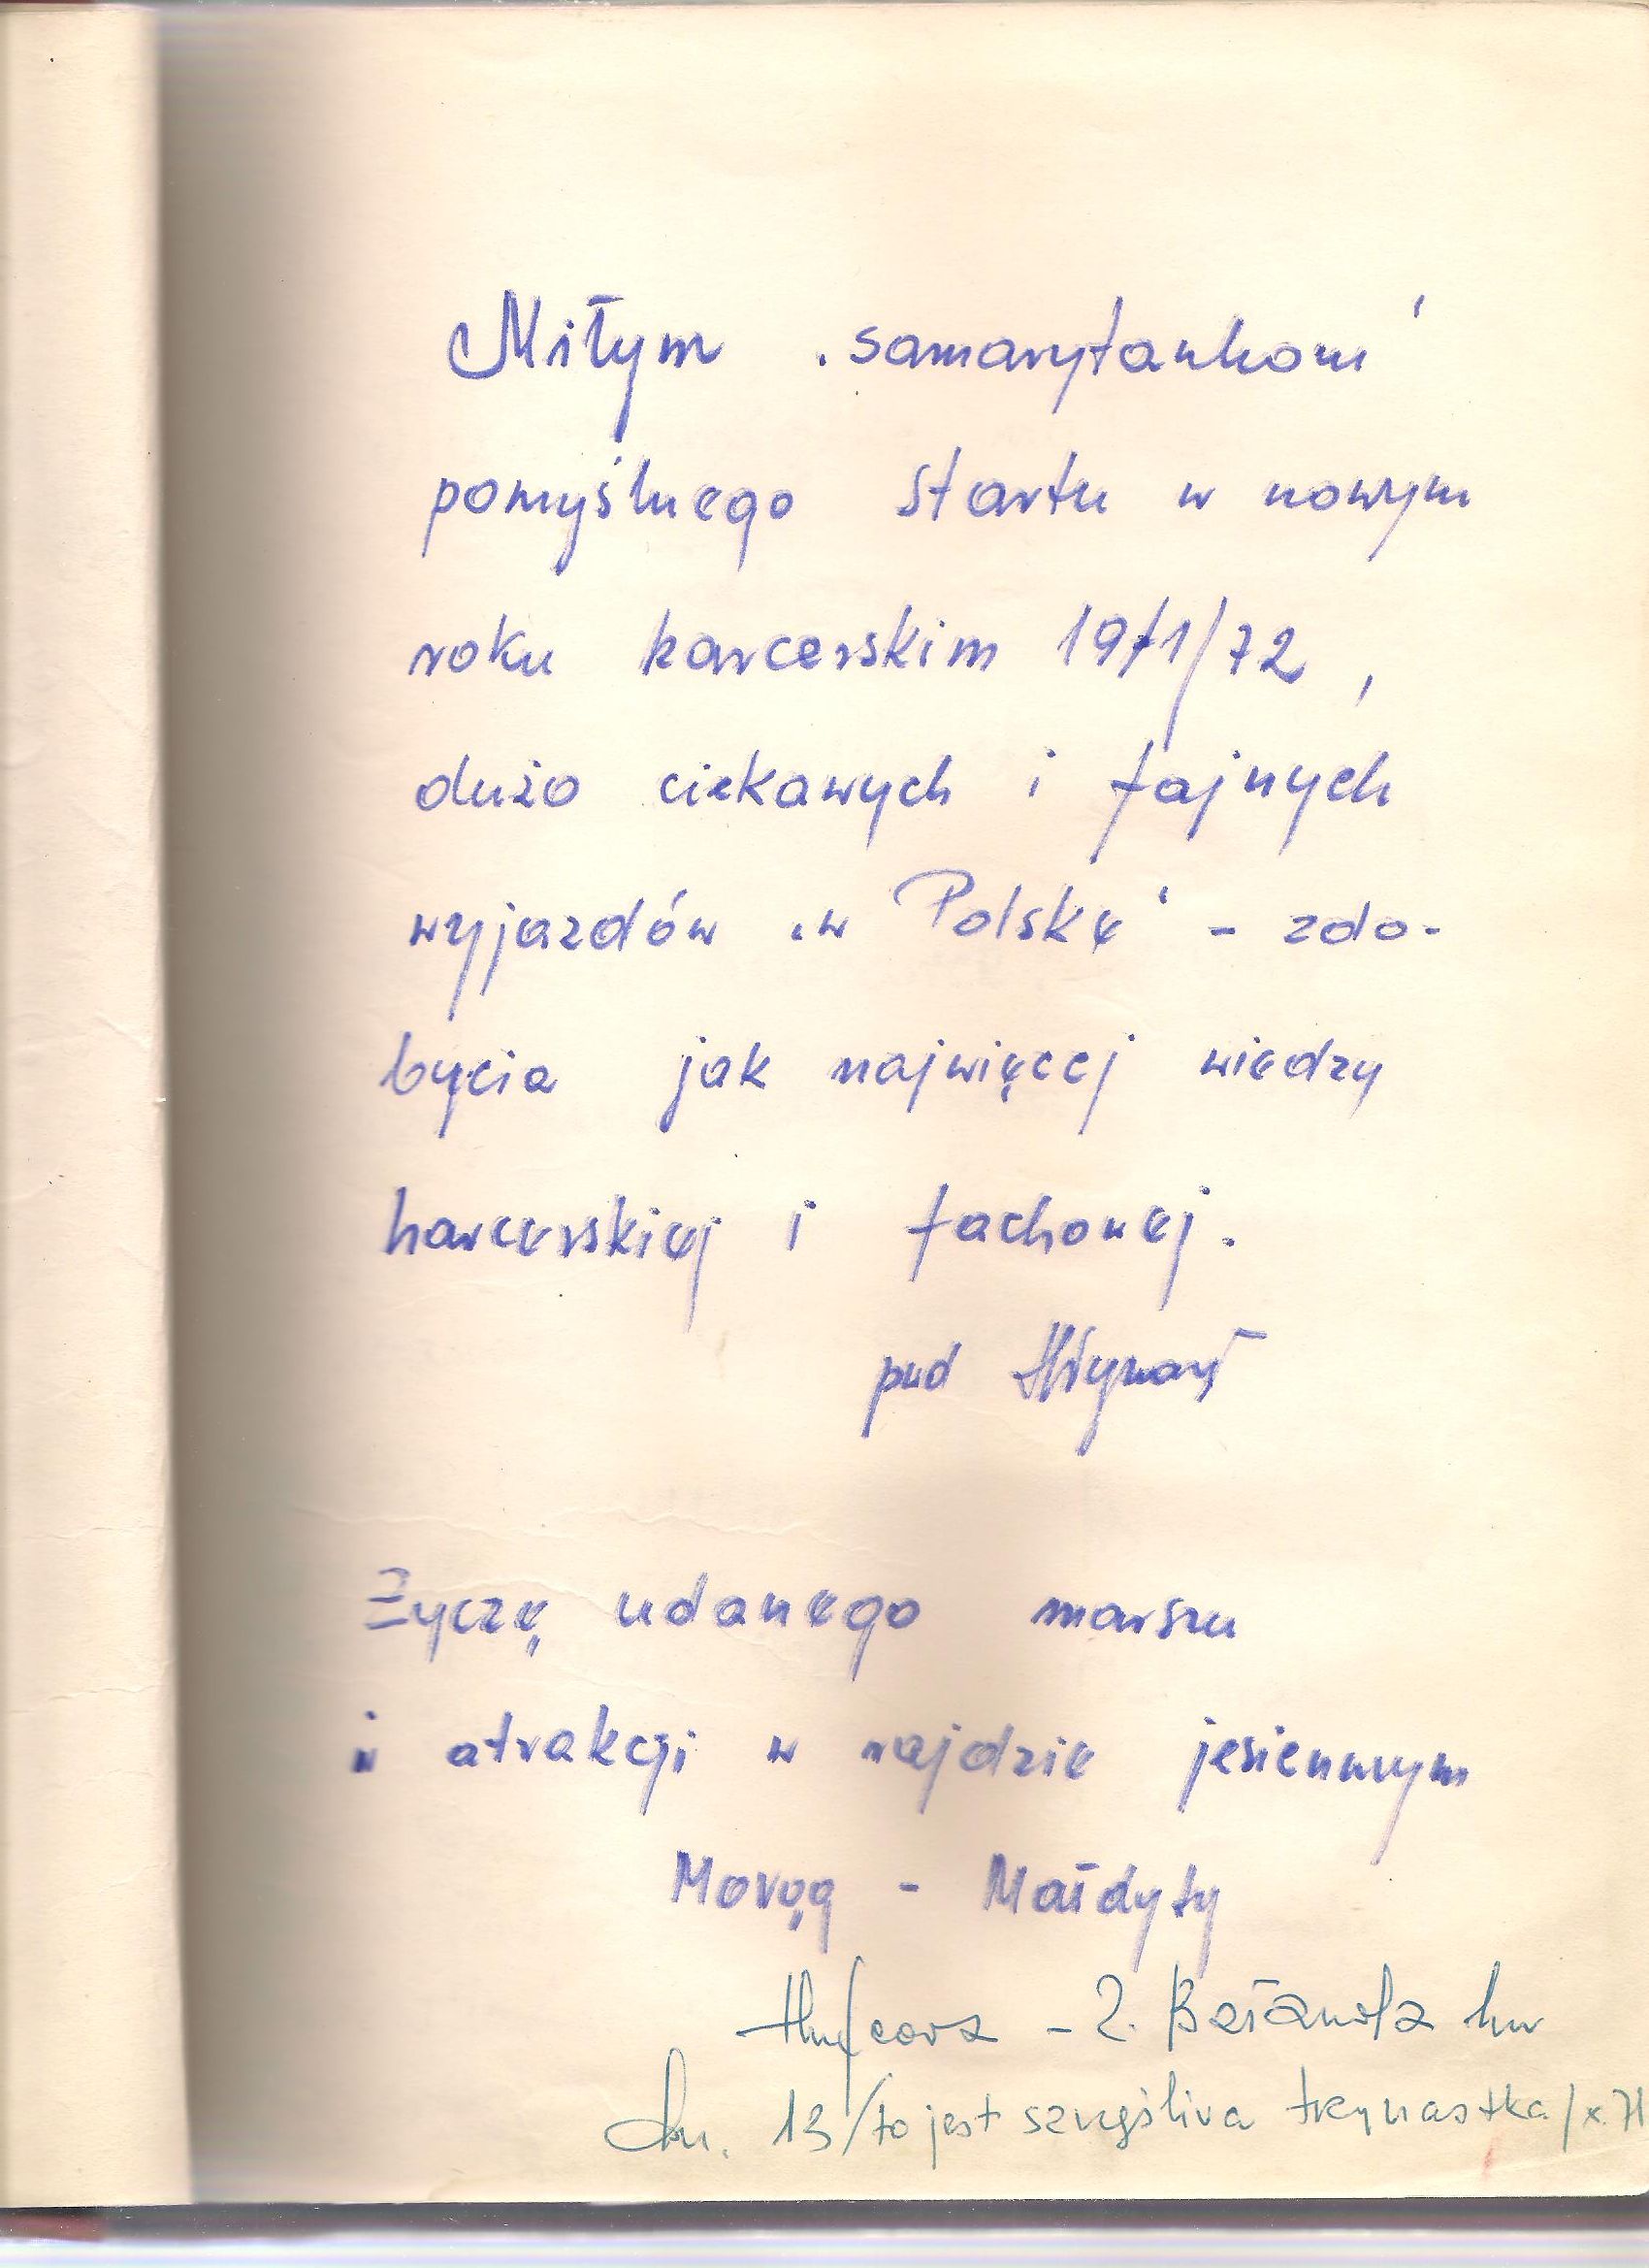 Miłym „samarytankom”
pomyślnego startu w nowym
roku harcerskim 1971/72,
dużo ciekawych i fajnych
wyjazdów „w Polskę” - zdo-
bycia jak najwięcej wiedzy
harcerskiej i fachowej.
pwd
Życzę udanego marszu
i atrakcji w rajdzie jesiennym
Morąg - Małdyty
Hufcowa - Z. hm
dn. 13 /to jest szczęśliwa trzynastka/ X. 71